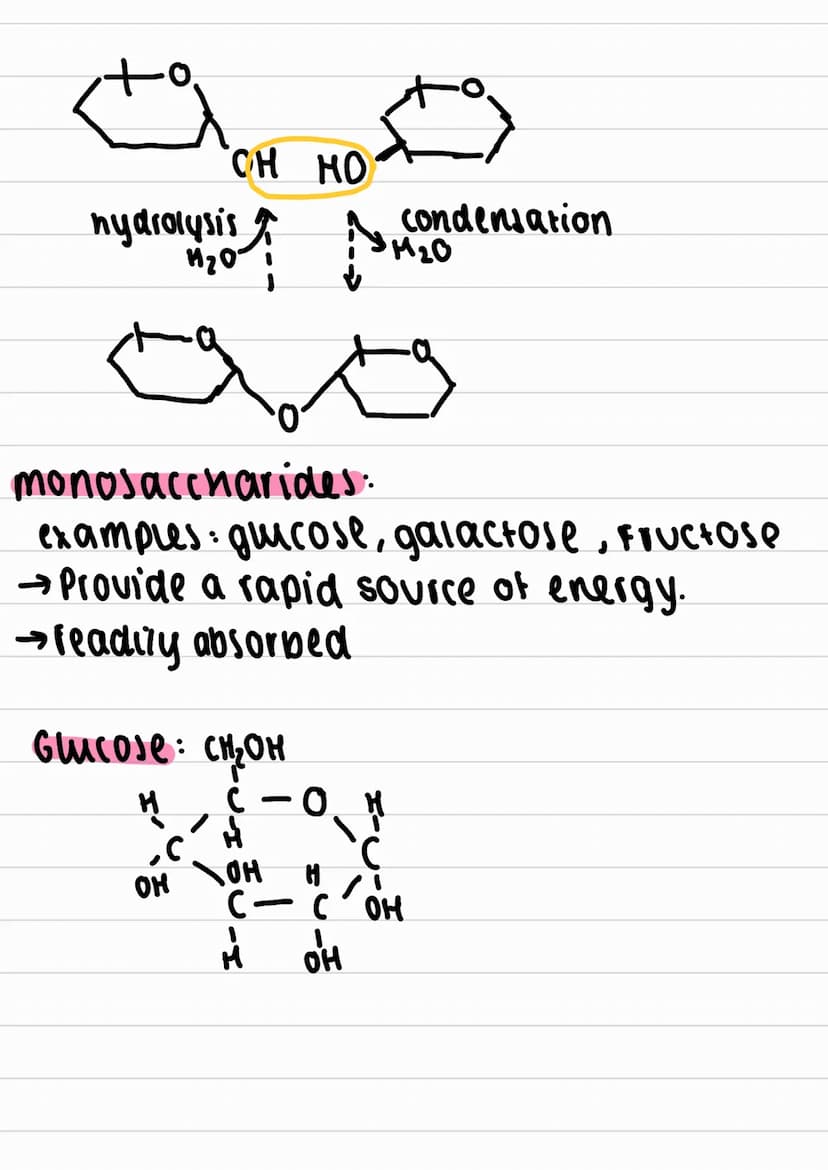 O O
OH HO
hydrolysis condensation
H₂O H₂O
O O
O
monosaccharides:
examples: glucose, galactose, fructose
→ Provide a rapid source of energy.
→ readily absorbed
Glucose: CH₂OH
H C - O H
C H C
OH OH H
C - C OH
H OH